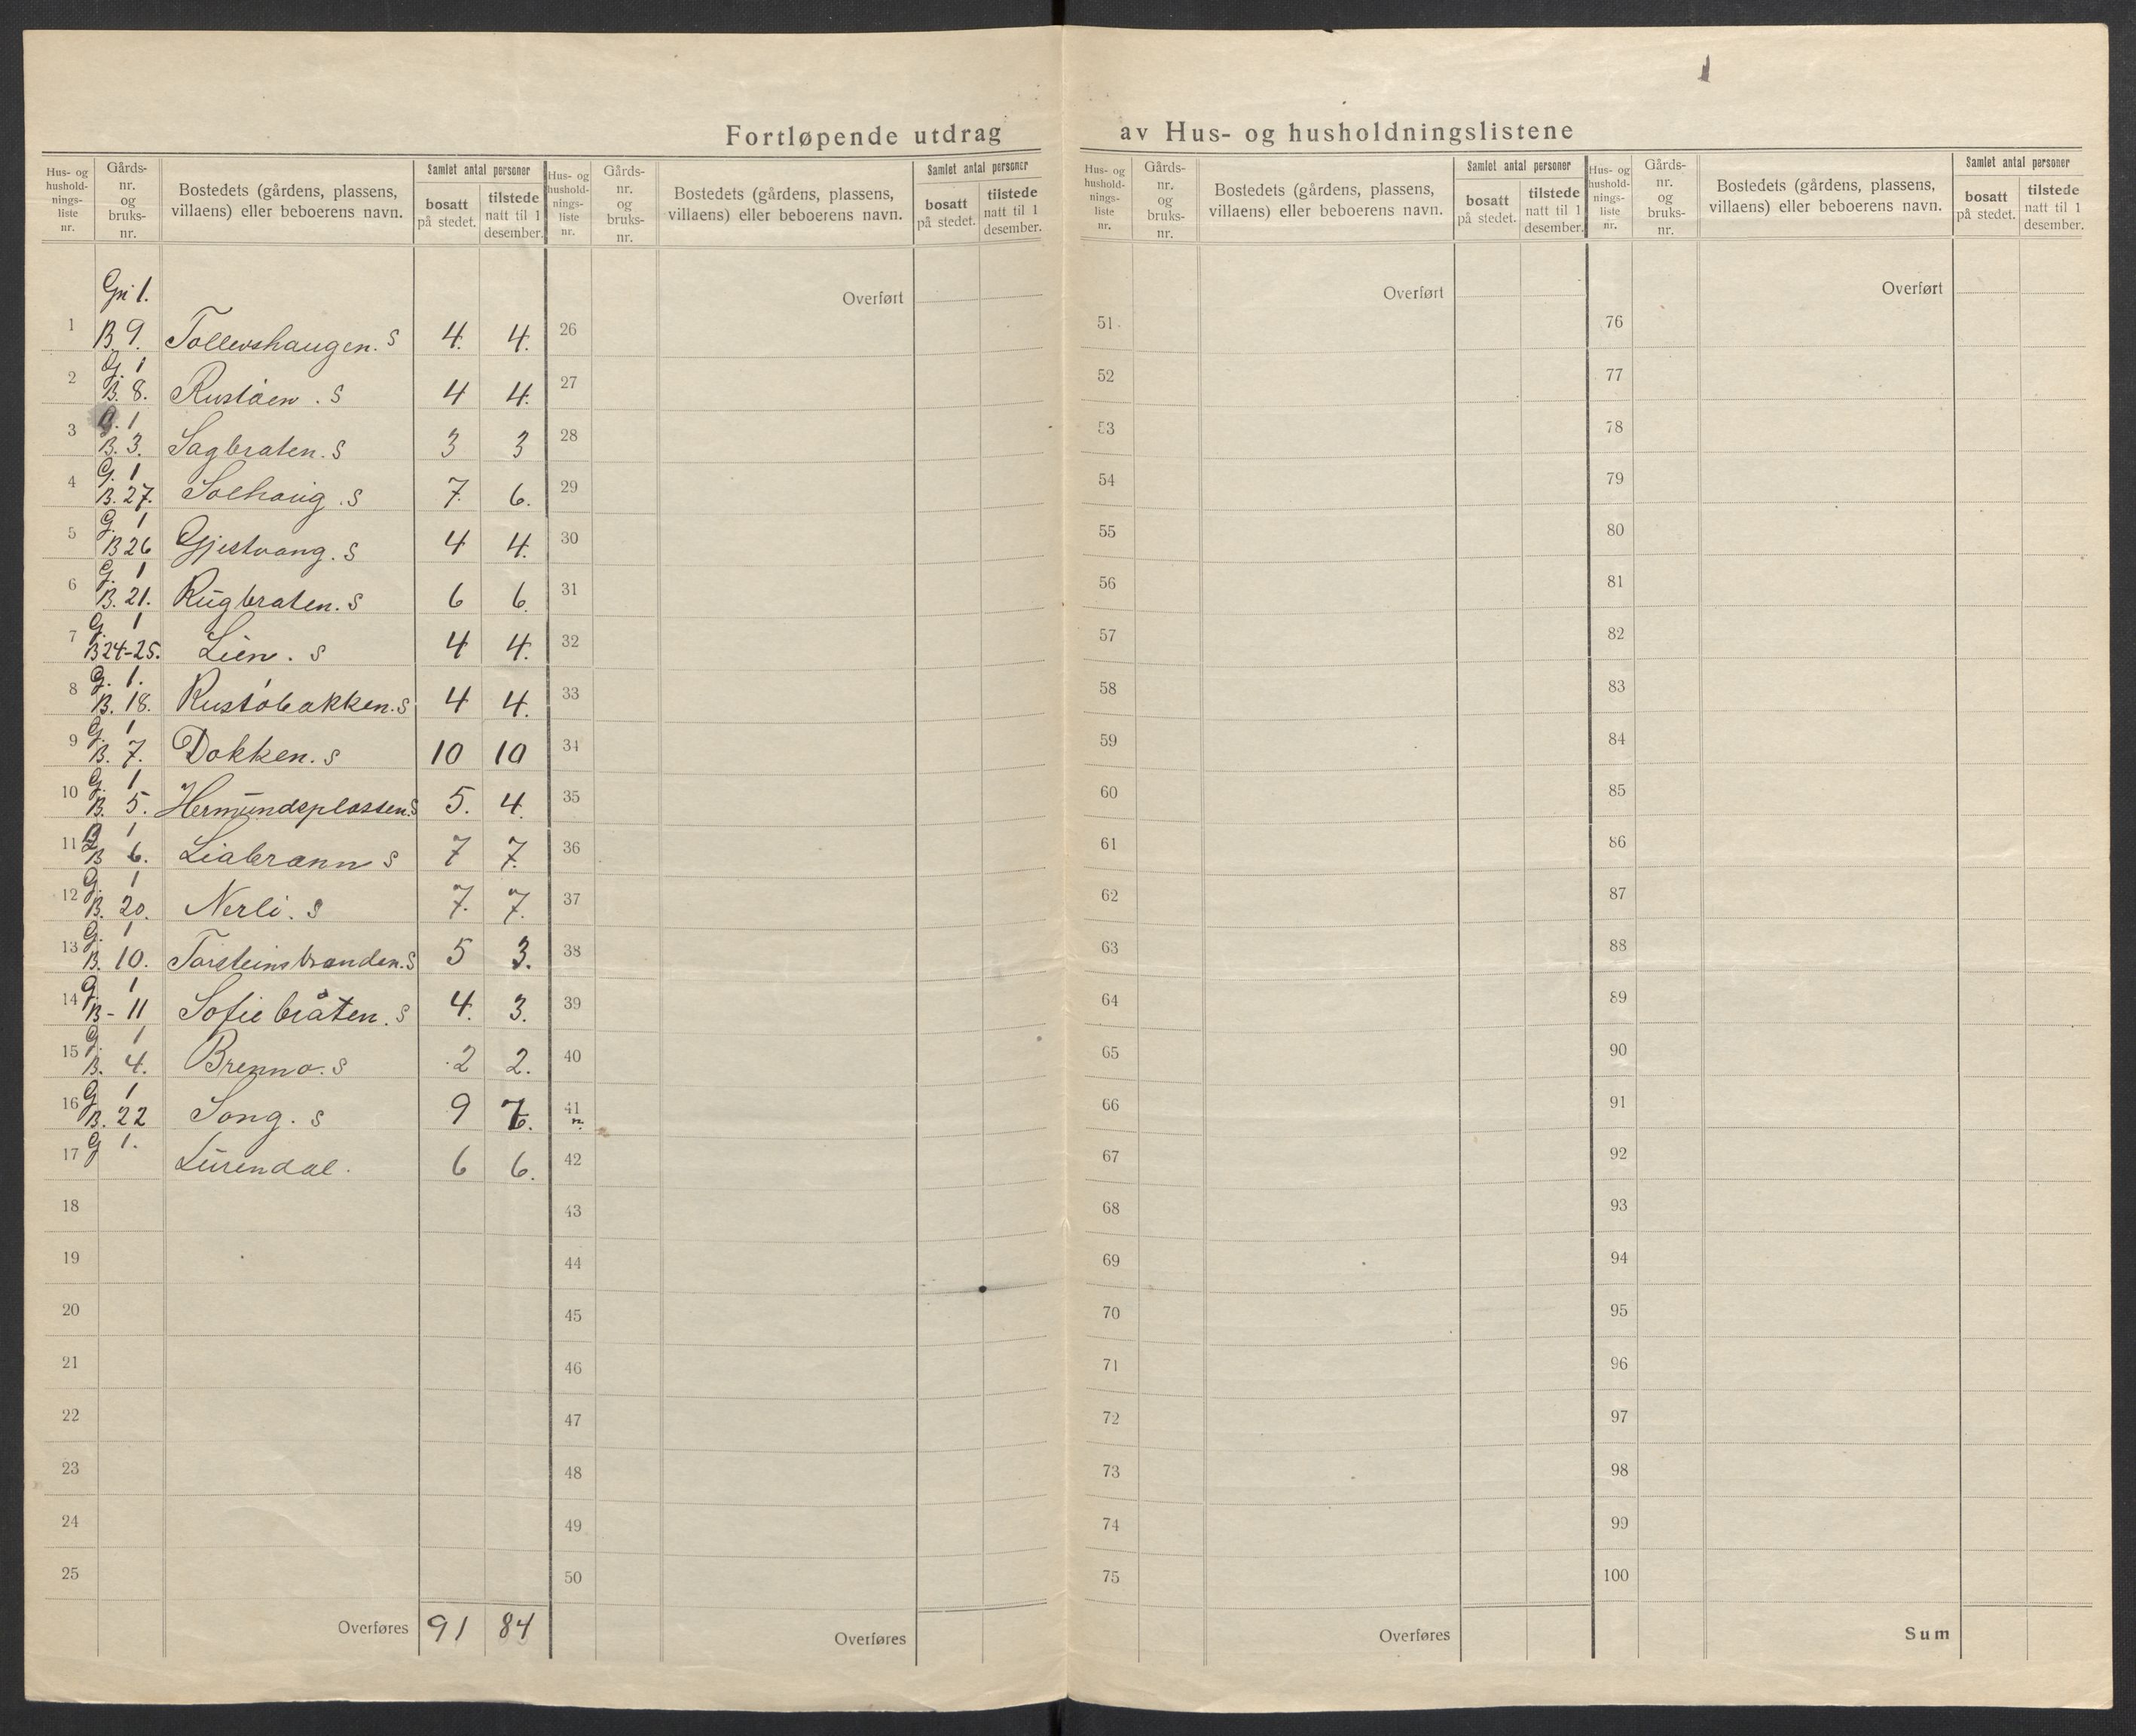 Fortløpende utdrag av Hus- og husholdningslistene
Hus- og hushold-nings-liste nr. Gårds-nr. og bruks-nr. Bostedets (gårdens, plassens, villaens) eller beboerens navn. Samlet antal personer bosatt på stedet. tilstede natt til 1 desember.
Hus- og hushold-nings-liste nr. Gårds-nr. og bruks-nr. Bostedets (gårdens, plassens, villaens) eller beboerens navn. Samlet antal personer bosatt på stedet. tilstede natt til 1 desember.
Hus- og hushold-nings-liste nr. Gårds-nr. og bruks-nr. Bostedets (gårdens, plassens, villaens) eller beboerens navn. Samlet antal personer bosatt på stedet. tilstede natt til 1 desember.
Hus- og hushold-nings-liste nr. Gårds-nr. og bruks-nr. Bostedets (gårdens, plassens, villaens) eller beboerens navn. Samlet antal personer bosatt på stedet. tilstede natt til 1 desember.
1 B 9. Tollevshaugen. S 4. 4.
2 G. 1 B. 8. Rustøen. S 4 4.
3 G. 1 B. 3. Sagbraten. S 3 3
4 G. 1 B. 27. Solhaug. S 7. 6.
5 G. 1 B 26 Gjestvang. S 4 4.
6 G. 1 B. 21. Rugbraten. S 6 6.
7 G. 1 B 24-25. Lien. S 4 4.
8 G. 1. B. 18. Rustøbakken. S 4 4.
9 G. 1 B. 7. Dokken. S 10 10
10 G. 1 B. 5. Hermundsplassen. S 5. 4.
11 1 B 6. Liabrann S 7 7.
12 G. 1 B. 20. Nerli. S 7. 7.
13 G. 1 B. 10. Torsteinsbranden. S 5 3.
14 G. 1 B - 11 Sofiebråten. S 4. 3.
15 G. 1 B. 4. Brenna. S 2 2.
16 G 1 B. 22 Song. S 9
17 G 1. Lurendal. 6 6.
18
19
20
21
22
23
24
25
Overføres 91 84
Overført
26
27
28
29
30
31
32
33
34
35
36
37
38
39
40
41
42
43
44
45
46
47
48
49
50
Overføres
Overført
51
52
53
54
55
56
57
58
59
60
61
62
63
64
65
66
67
68
69
70
71
72
73
74
75
Overføres
Overført
76
77
78
79
80
81
82
83
84
85
86
87
88
89
90
91
92
93
94
95
96
97
98
99
100
Sum